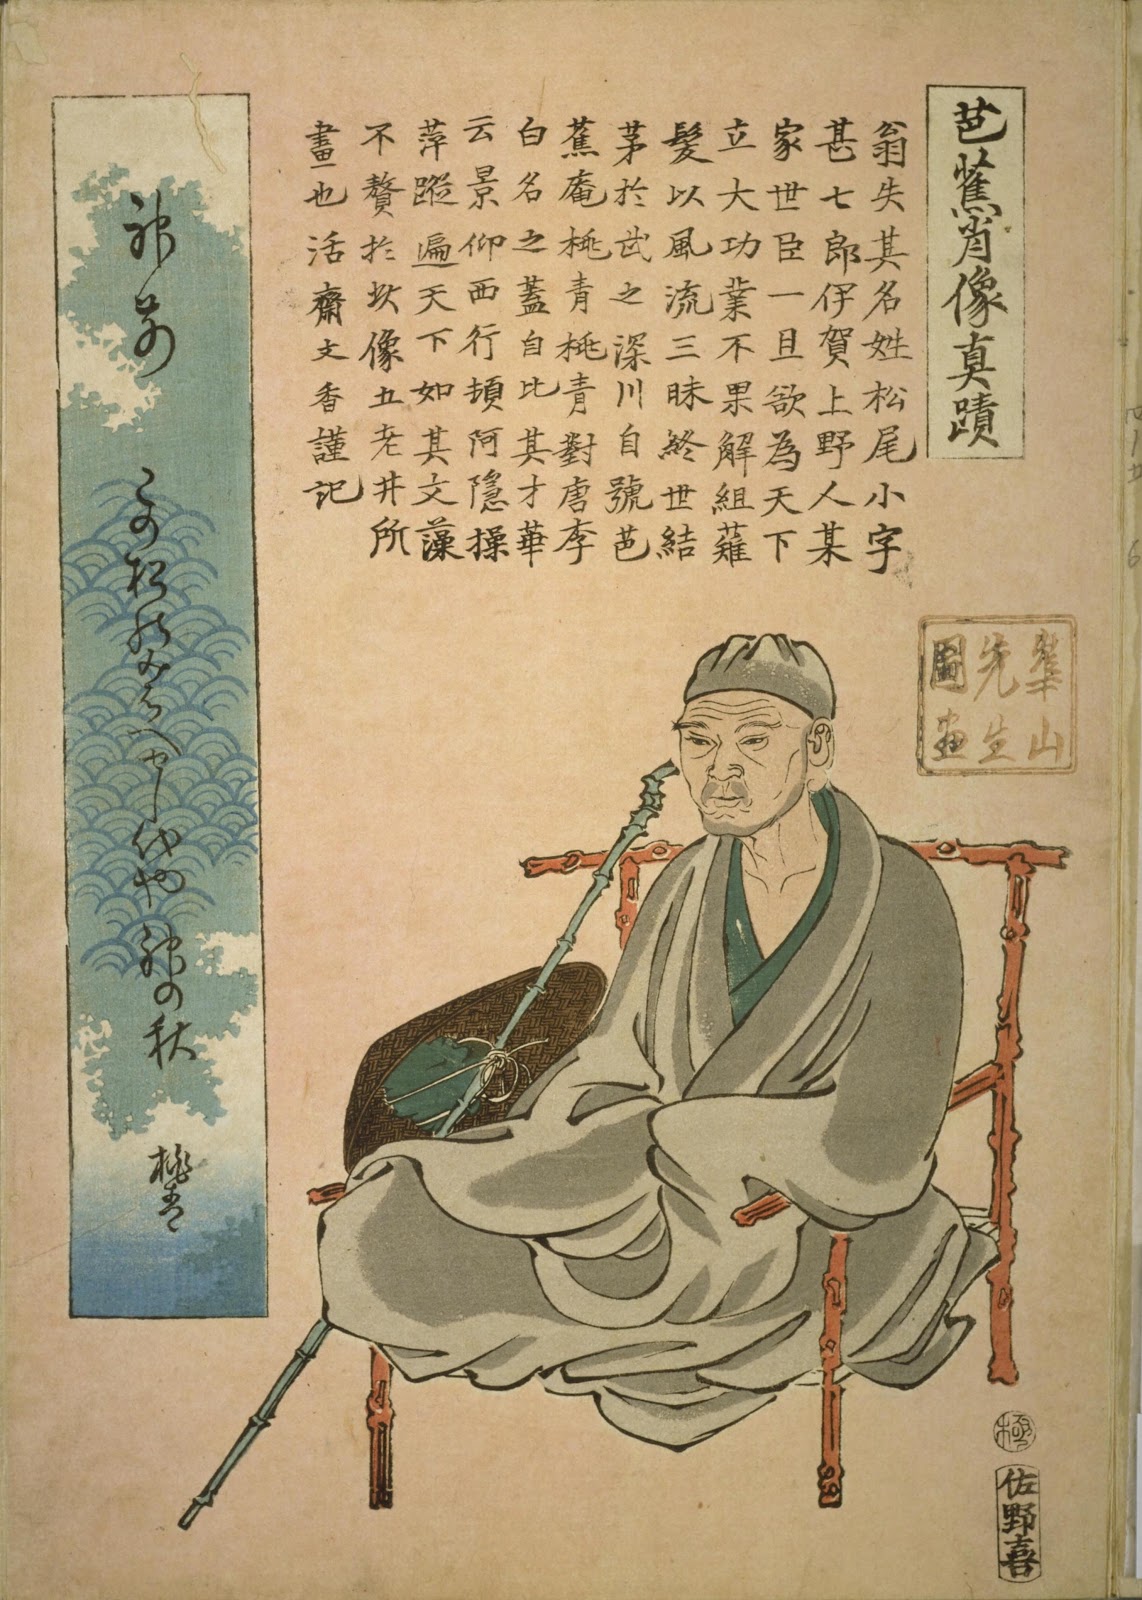 芭蕉肖像真蹟
翁失其名姓松尾小字
甚七郎伊賀上野人某
家世臣一旦欲為天下
立大功業不果解組薙
髮以風流三昧終世結
茅於武之深川自號芭
蕉庵桃青桃青對唐李
白名之蓋自比其才華
云景仰西行頓阿隱操
萍蹤遍天下如其文藻
不贅於 像五老井所
畫也活齋文香謹記
崋山
先生
圖画
神前
この松のみはへせし代や神の秋
桃青
極
佐野喜